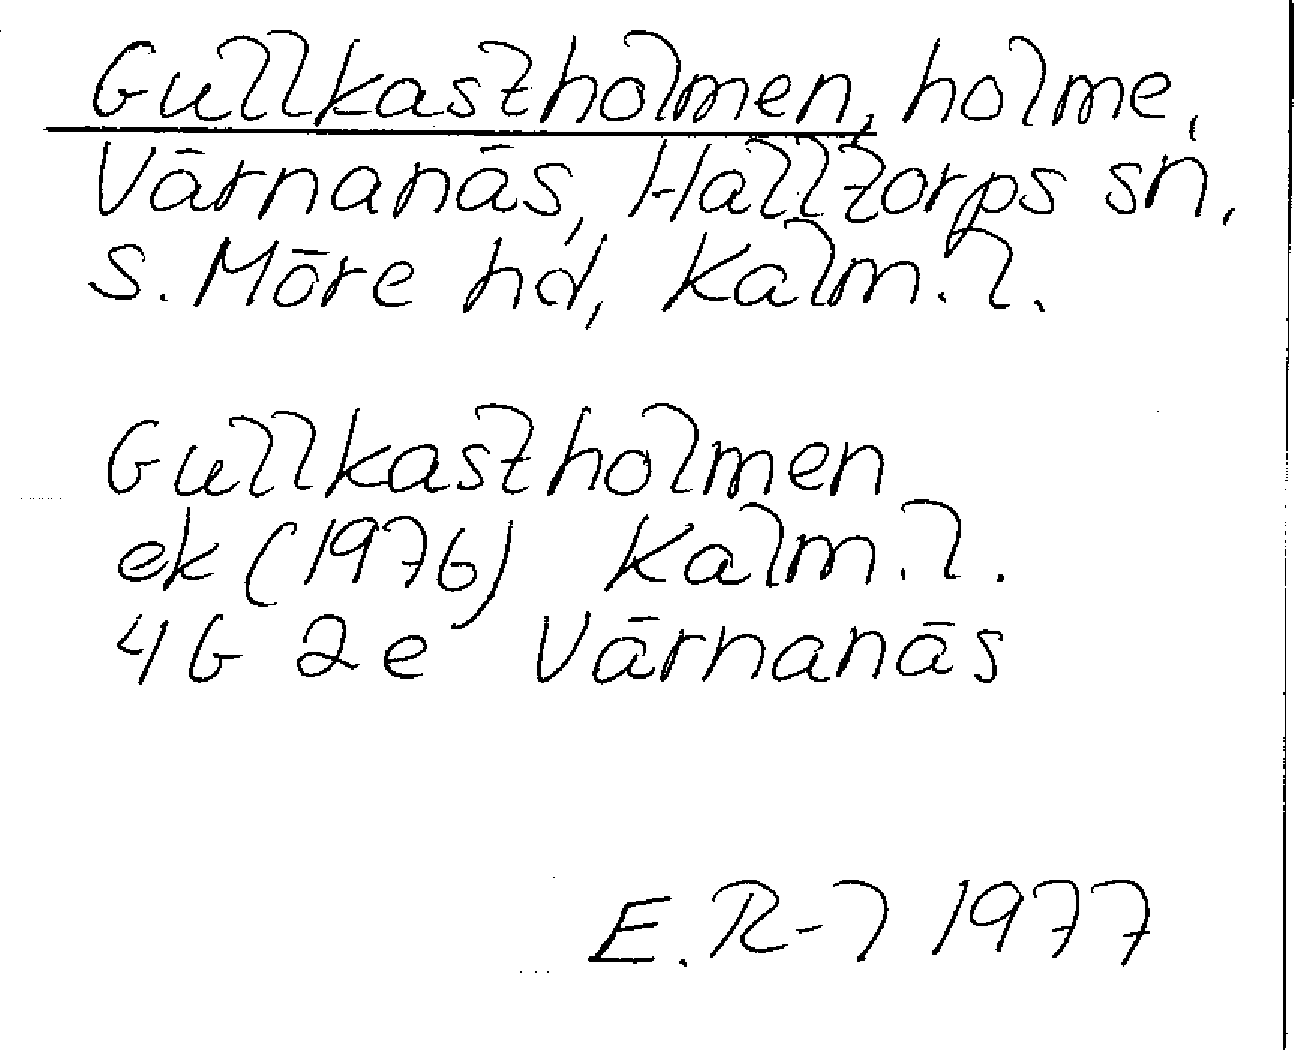 Gullkastholmen, holme,
Värnanäs, Halltorps sn,
S. Möre hd, Kalm. l.
Gullkastholmen
ek (1976) Kalm. l.
4G 2e Värnanäs
E. R-l 1977